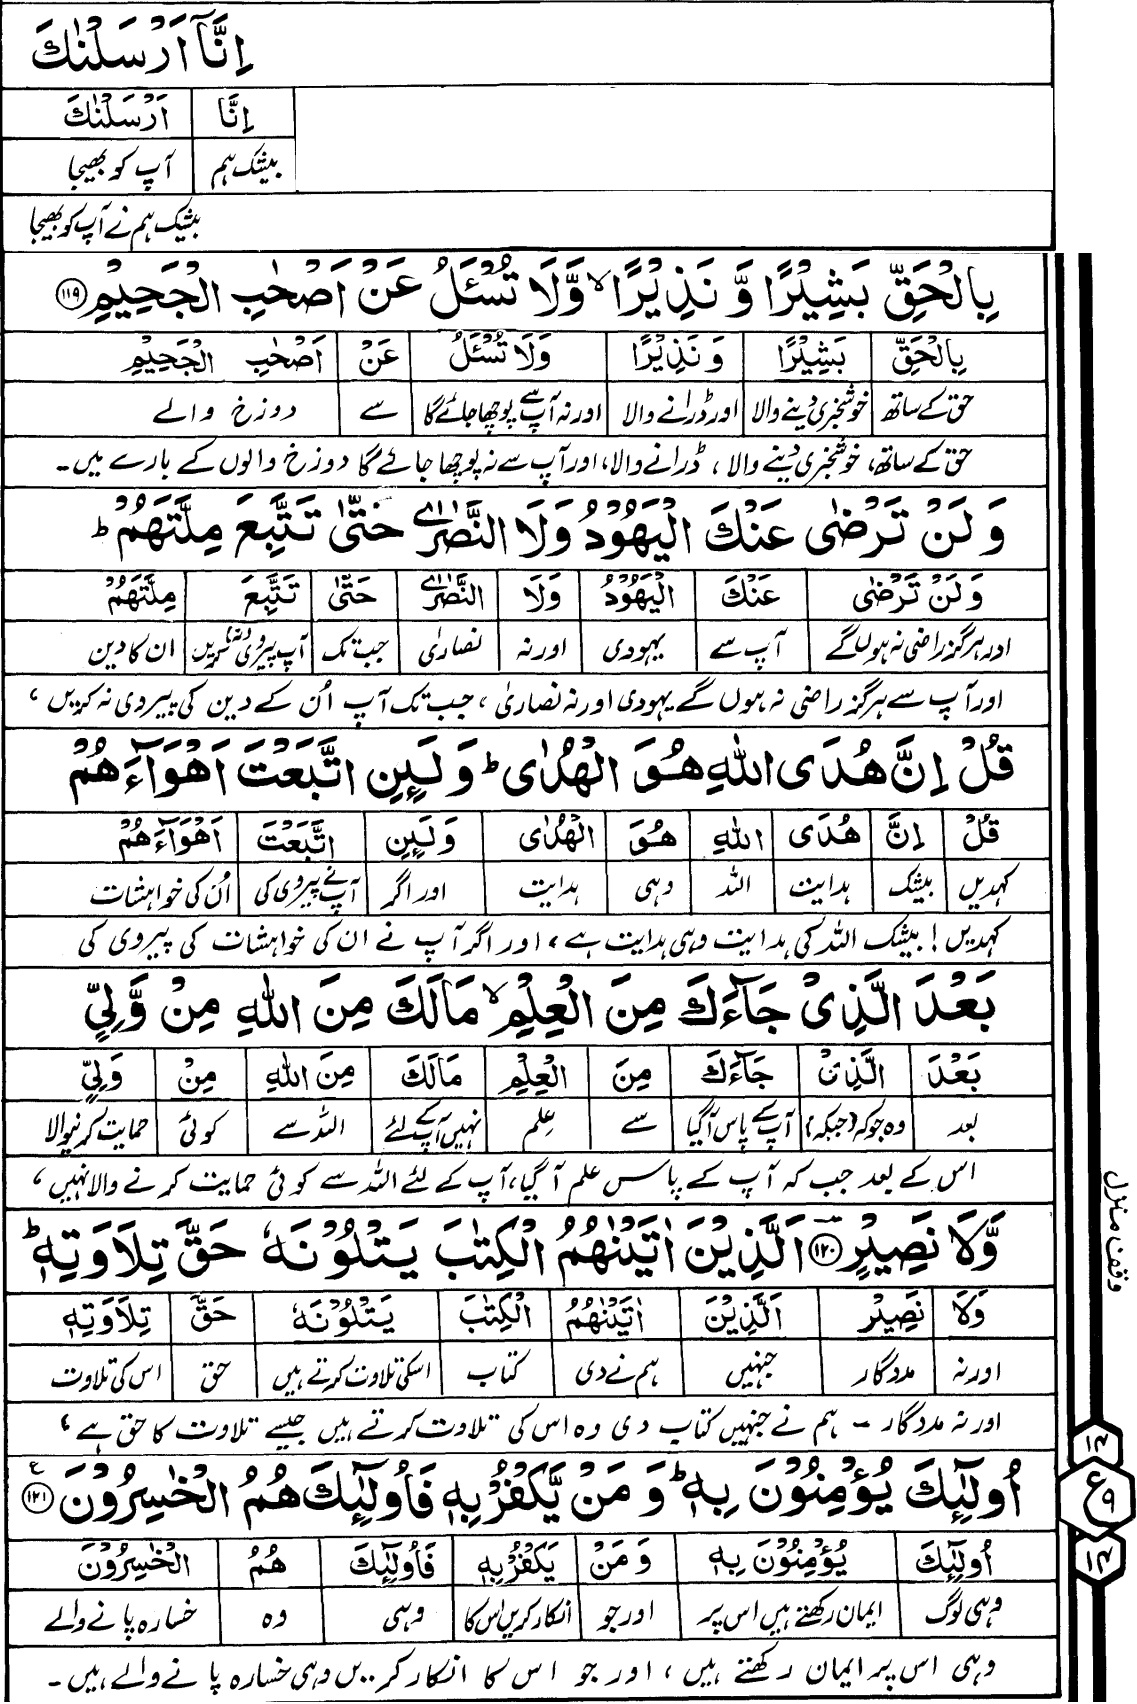 اِنَّاۤ اَرْسَلْنٰكَ
اِنَّا اَرْسَلْنٰكَ
بیشک ہم آپ کو بھیجا
بیشک ہم نے آپ کو بھیجا
بِالْحَقِّ بَشِيْرًا وَّ نَذِيْرًا ۙ وَّلَا تُسْـَٔلُ عَنْ اَصْحٰبِ الْجَحِيْمِ ﴿۱۱۹﴾
بِالْحَقِّ بَشِيْرًا وَ نَذِيْرًا وَلَا تُسْـَٔلُ عَنْ اَصْحٰبِ الْجَحِيْمِ
حق کے ساتھ خوشخبری دینے والا اور ڈرانے والا اور نہ آپ سے پوچھا جائے گا سے دوزخ والے
حق کے ساتھ، خوشخبری دینے والا، ڈرانے والا، اور آپ سے نہ پوچھا جائے گا دوزخ والوں کے بارے میں۔
وَ لَنْ تَرْضٰى عَنْكَ الْيَهُوْدُ وَلَا النَّصٰرٰى حَتّٰى تَتَّبِعَ مِلَّتَهُمْ ؕ
وَ لَنْ تَرْضٰى عَنْكَ الْيَهُوْدُ وَلَا النَّصٰرٰى حَتّٰى تَتَّبِعَ مِلَّتَهُمْ
اور ہرگز راضی نہ ہوں گے آپ سے یہودی اور نہ نصاریٰ جب تک آپ پیروی (نہ) کریں ان کا دین
اور آپ سے ہرگز راضی نہ ہوں گے یہودی اور نہ نصاریٰ، جب تک آپ اُن کے دین کی پیروی نہ کریں،
قُلْ اِنَّ هُدَى اللّٰهِ هُوَ الْهُدٰى ؕ وَ لَىِٕنِ اتَّبَعْتَ اَهْوَآءَهُمْ
قُلْ اِنَّ هُدَى اللّٰهِ هُوَ الْهُدٰى وَ لَىِٕنِ اتَّبَعْتَ اَهْوَآءَهُمْ
کہدیں بیشک ہدایت اللہ وہی ہدایت اور اگر آپ نے پیروی کی اُن کی خواہشات
کہدیں! بیشک اللہ کی ہدایت وہی ہدایت ہے، اور اگر آپ نے ان کی خواہشات کی پیروی کی
بَعْدَ الَّذِىْ جَآءَكَ مِنَ الْعِلْمِ ۙ مَا لَكَ مِنَ اللّٰهِ مِنْ وَّلِىٍّ
بَعْدَ الَّذِىْ جَآءَكَ مِنَ الْعِلْمِ مَا لَكَ مِنَ اللّٰهِ مِنْ وَلِىٍّ
بعد وہ جو کہ (جبکہ) آپ کے پاس آگیا سے علم نہیں آپ کے لئے اللہ سے کوئی حمایت کرنیوالا
اس کے بعد جب کہ آپ کے پاس علم آ گیا، آپ کے لئے اللہ سے کوئی حمایت کرنے والا نہیں،
وَّلَا نَصِيْرٍ ﴿۱۲۰﴾ اَلَّذِيْنَ اٰتَيْنٰهُمُ الْكِتٰبَ يَتْلُوْنَهٗ حَقَّ تِلَاوَتِهٖ ؕ
وَلَا نَصِيْرٍ اَلَّذِيْنَ اٰتَيْنٰهُمُ الْكِتٰبَ يَتْلُوْنَهٗ حَقَّ تِلَاوَتِهٖ
اور نہ مددگار جنہیں ہم نے دی کتاب اسکی تلاوت کرتے ہیں حق اس کی تلاوت
اور نہ مددگار۔ ہم نے جنہیں کتاب دی وہ اس کی تلاوت کرتے ہیں جیسے تلاوت کا حق ہے،
اُولٰٓىِٕكَ يُؤْمِنُوْنَ بِهٖ ؕ وَ مَنْ يَّكْفُرْ بِهٖ فَاُولٰٓىِٕكَ هُمُ الْخٰسِرُوْنَ ﴿۱۲۱﴾ ع
اُولٰٓىِٕكَ يُؤْمِنُوْنَ بِهٖ وَ مَنْ يَكْفُرْ بِهٖ فَاُولٰٓىِٕكَ هُمُ الْخٰسِرُوْنَ
وہی لوگ ایمان رکھتے ہیں اس پر اور جو انکار کریں اس کا وہی وہ خسارہ پانے والے
وہی اس پر ایمان رکھتے ہیں، اور جو اس کا انکار کریں وہی خسارہ پانے والے ہیں۔
وقف منزل
۱۴
ع ۹
۱۴